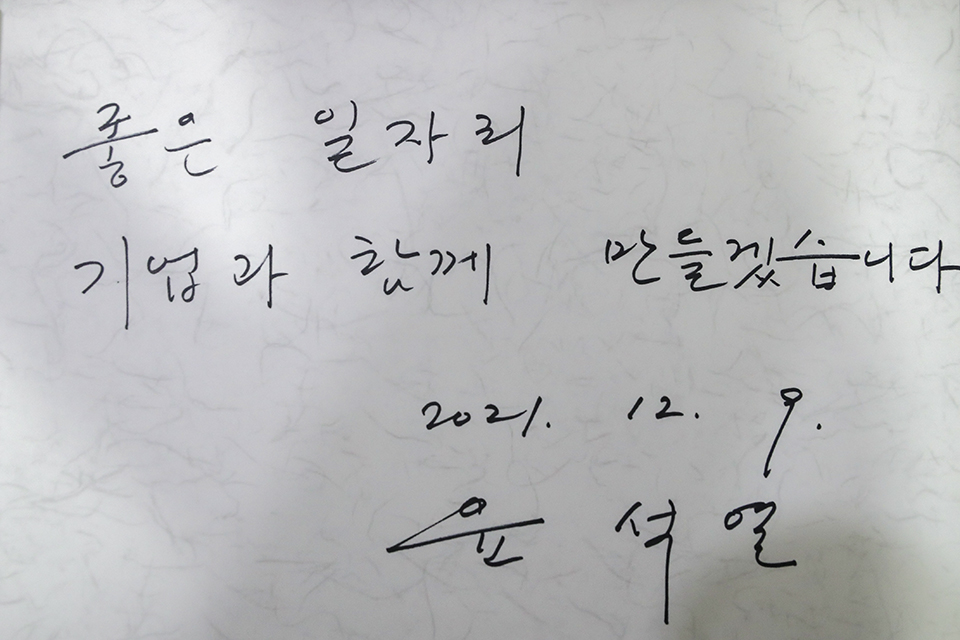 좋은 일자리
기업과 함께 만들겠습니다
2021. 12. 9.
윤석열